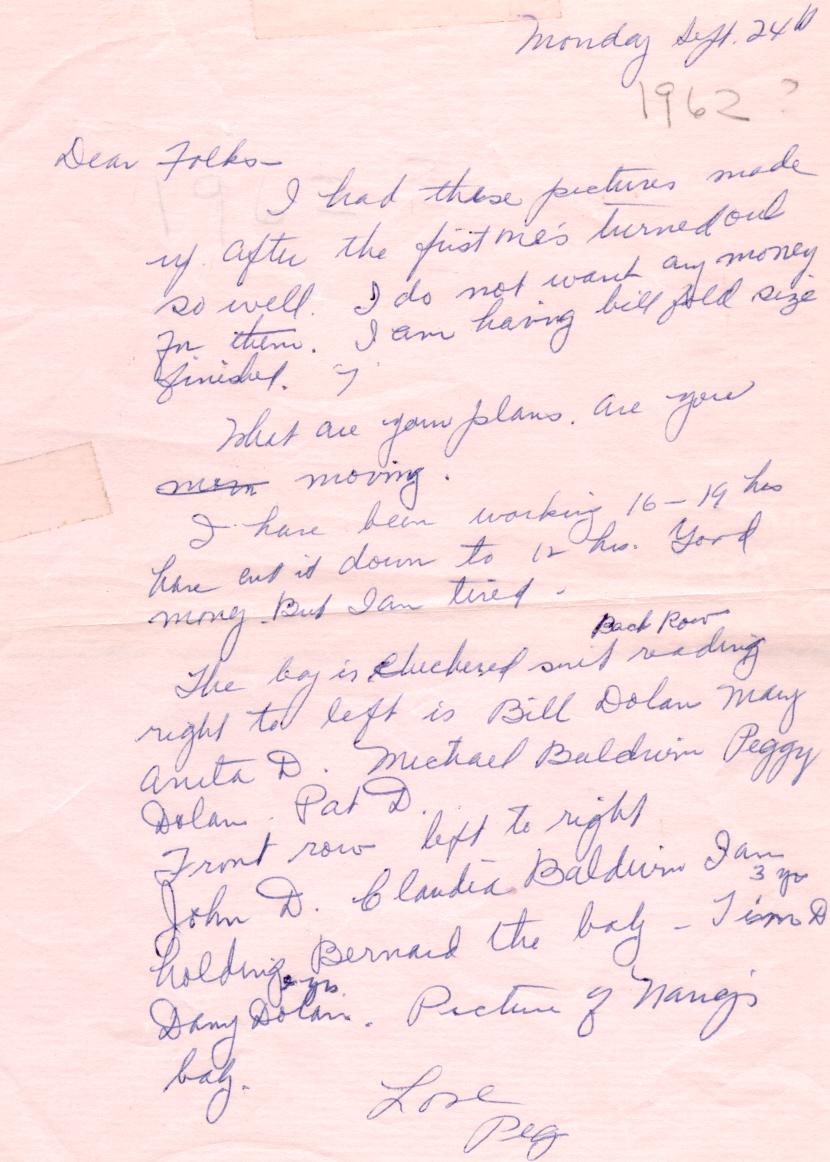 Monday Sept. 24th
1962 ?
Dear Folks—
I had these pictures made
up. After the first one's turned out
so well. I do not want any money
for them. I am having bill fold size
finished.
What are your plans. Are you
moving.
I have been working 16-19 hrs
have cut it down to 12 hrs. Good
money. But I am tired -
Back Row
The boy is checkered suit reading
right to left is Bill Dolan Mary
Anita D. Michael Baldwin Peggy
Dolan. Pat D.
Front row left to right
John D. Claudia Baldwin I am
3 yrs
holding Bernard the baby - Tim D
yrs
Dany Dolan. Picture of Nancy's
baby.
Love
Peg